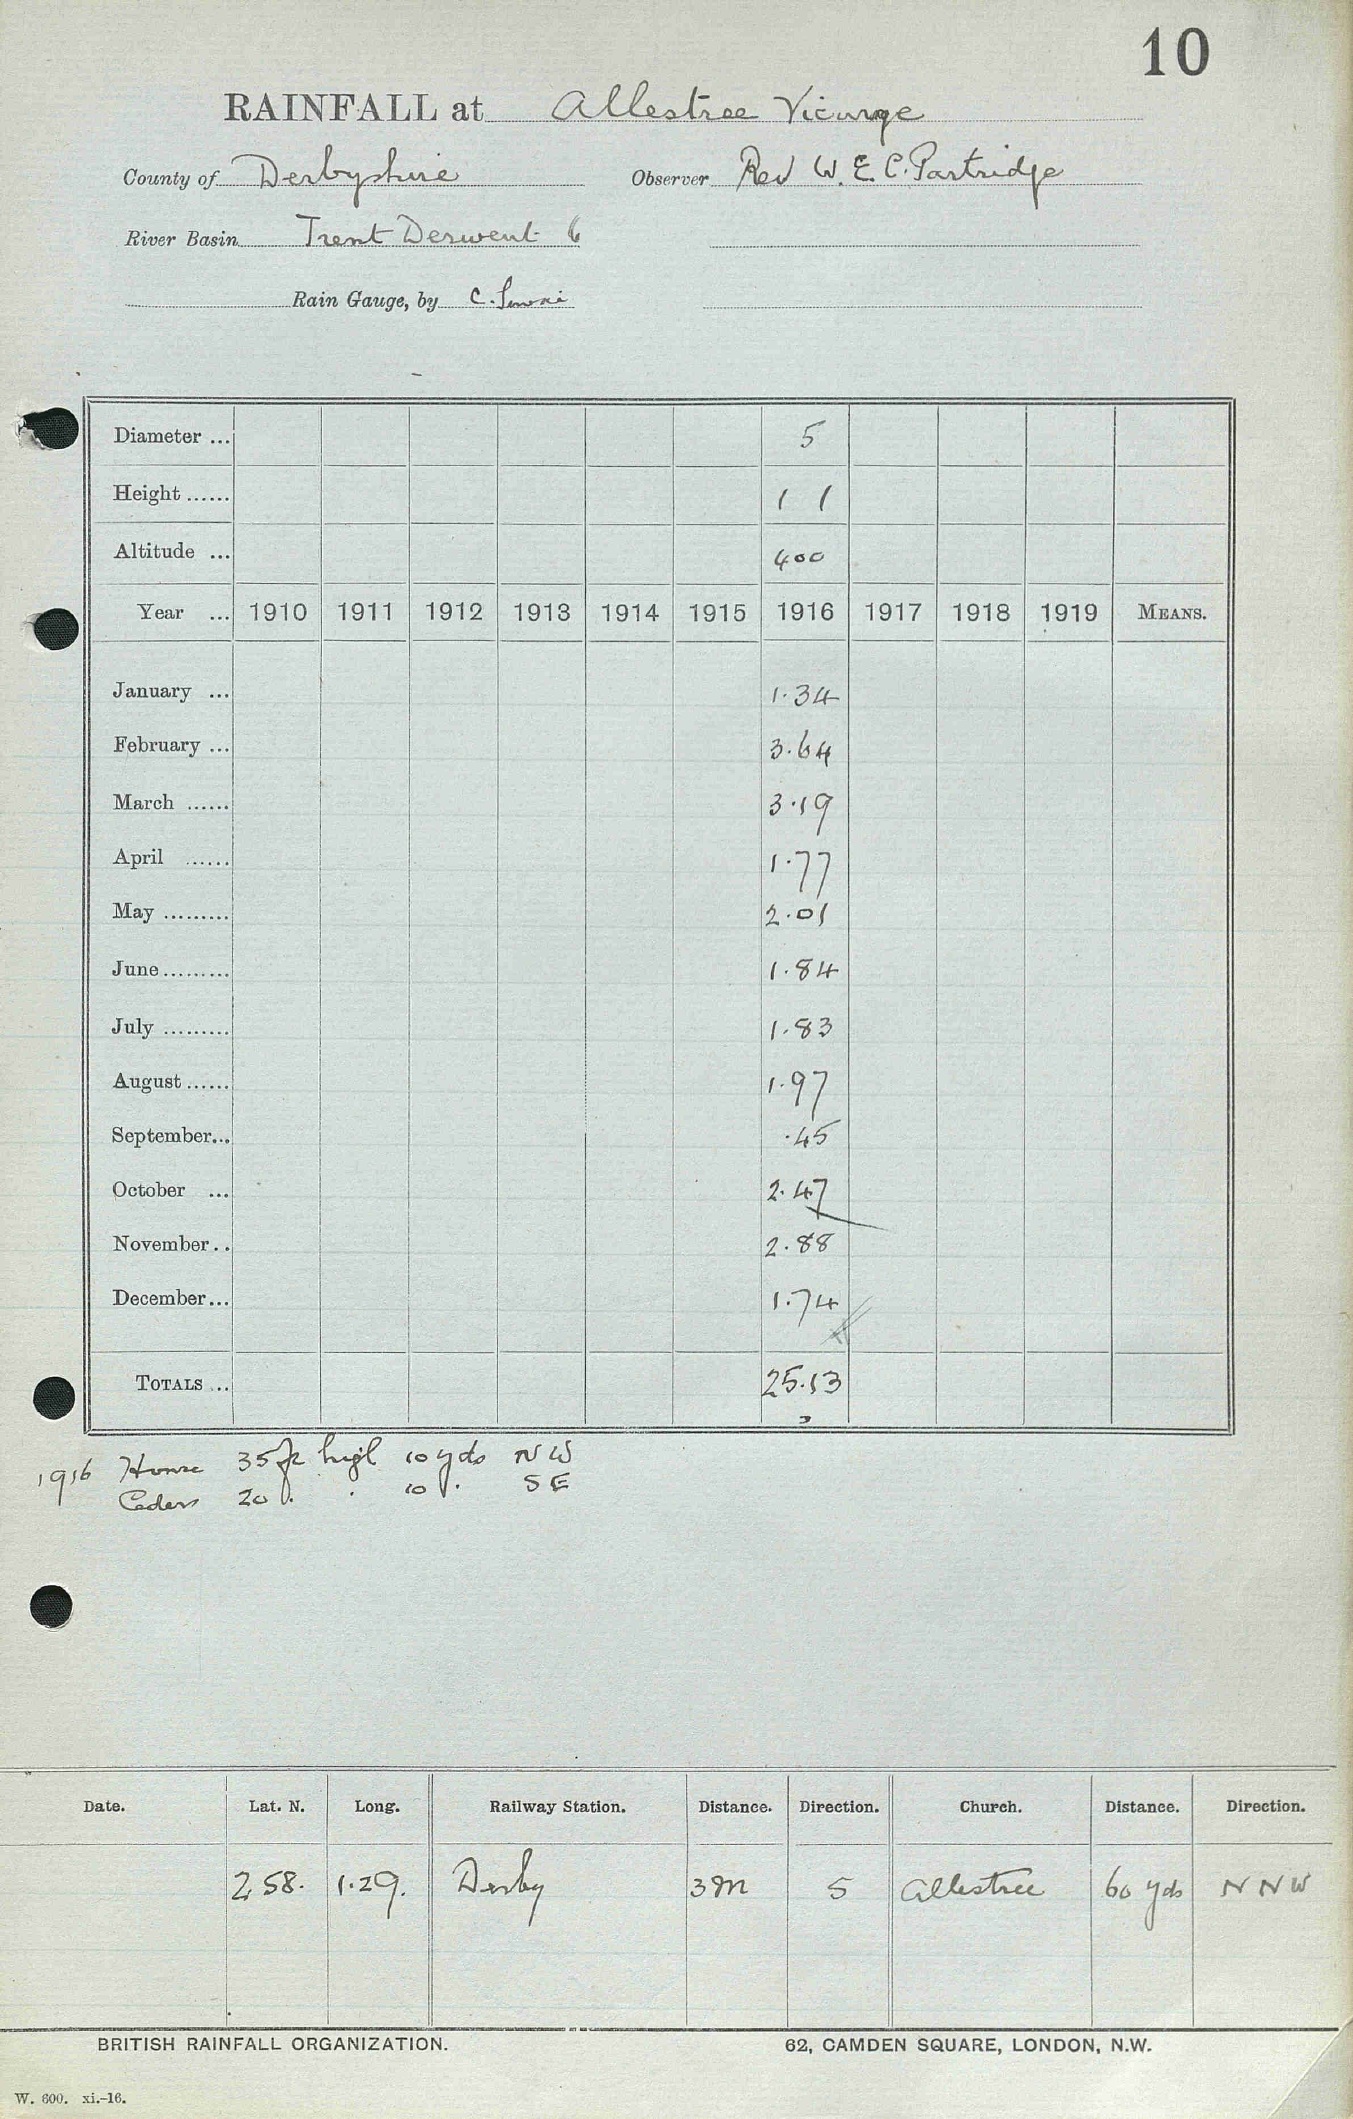 10
RAINFALL at Allestree Vicarge
County of Derbyshire Observer Rev W. E. C. Partridge
River Basin Trent Derwent 6
Rain Gauge, by C.
Diameter ... 5
Height ...... 1 1
Altitude ... 400
Year ... 1910 1911 1912 1913 1914 1915 1916 1917 1918 1919 MEANS.
January ... 1.34
February ... 3.64
March ...... 3.19
April ...... 1.77
May ......... 2.01
June ......... 1.84
July ......... 1.83
August ...... 1.97
September... .45
October ... 2.47
November.. 2.88
December... 1.74
TOTALS ... 25.13
3
1916 House 35 ft high 10 yds NW
Cedars 20 . . 10 . SE
Date. Lat. N. Long. Railway Station. Distance. Direction. Church. Distance. Direction.
2 58. 1.29. Derby 3m S Allestree 60 yds NNW
BRITISH RAINFALL ORGANIZATION. 62, CAMDEN SQUARE, LONDON, N.W.
W. 600. xi.-16.